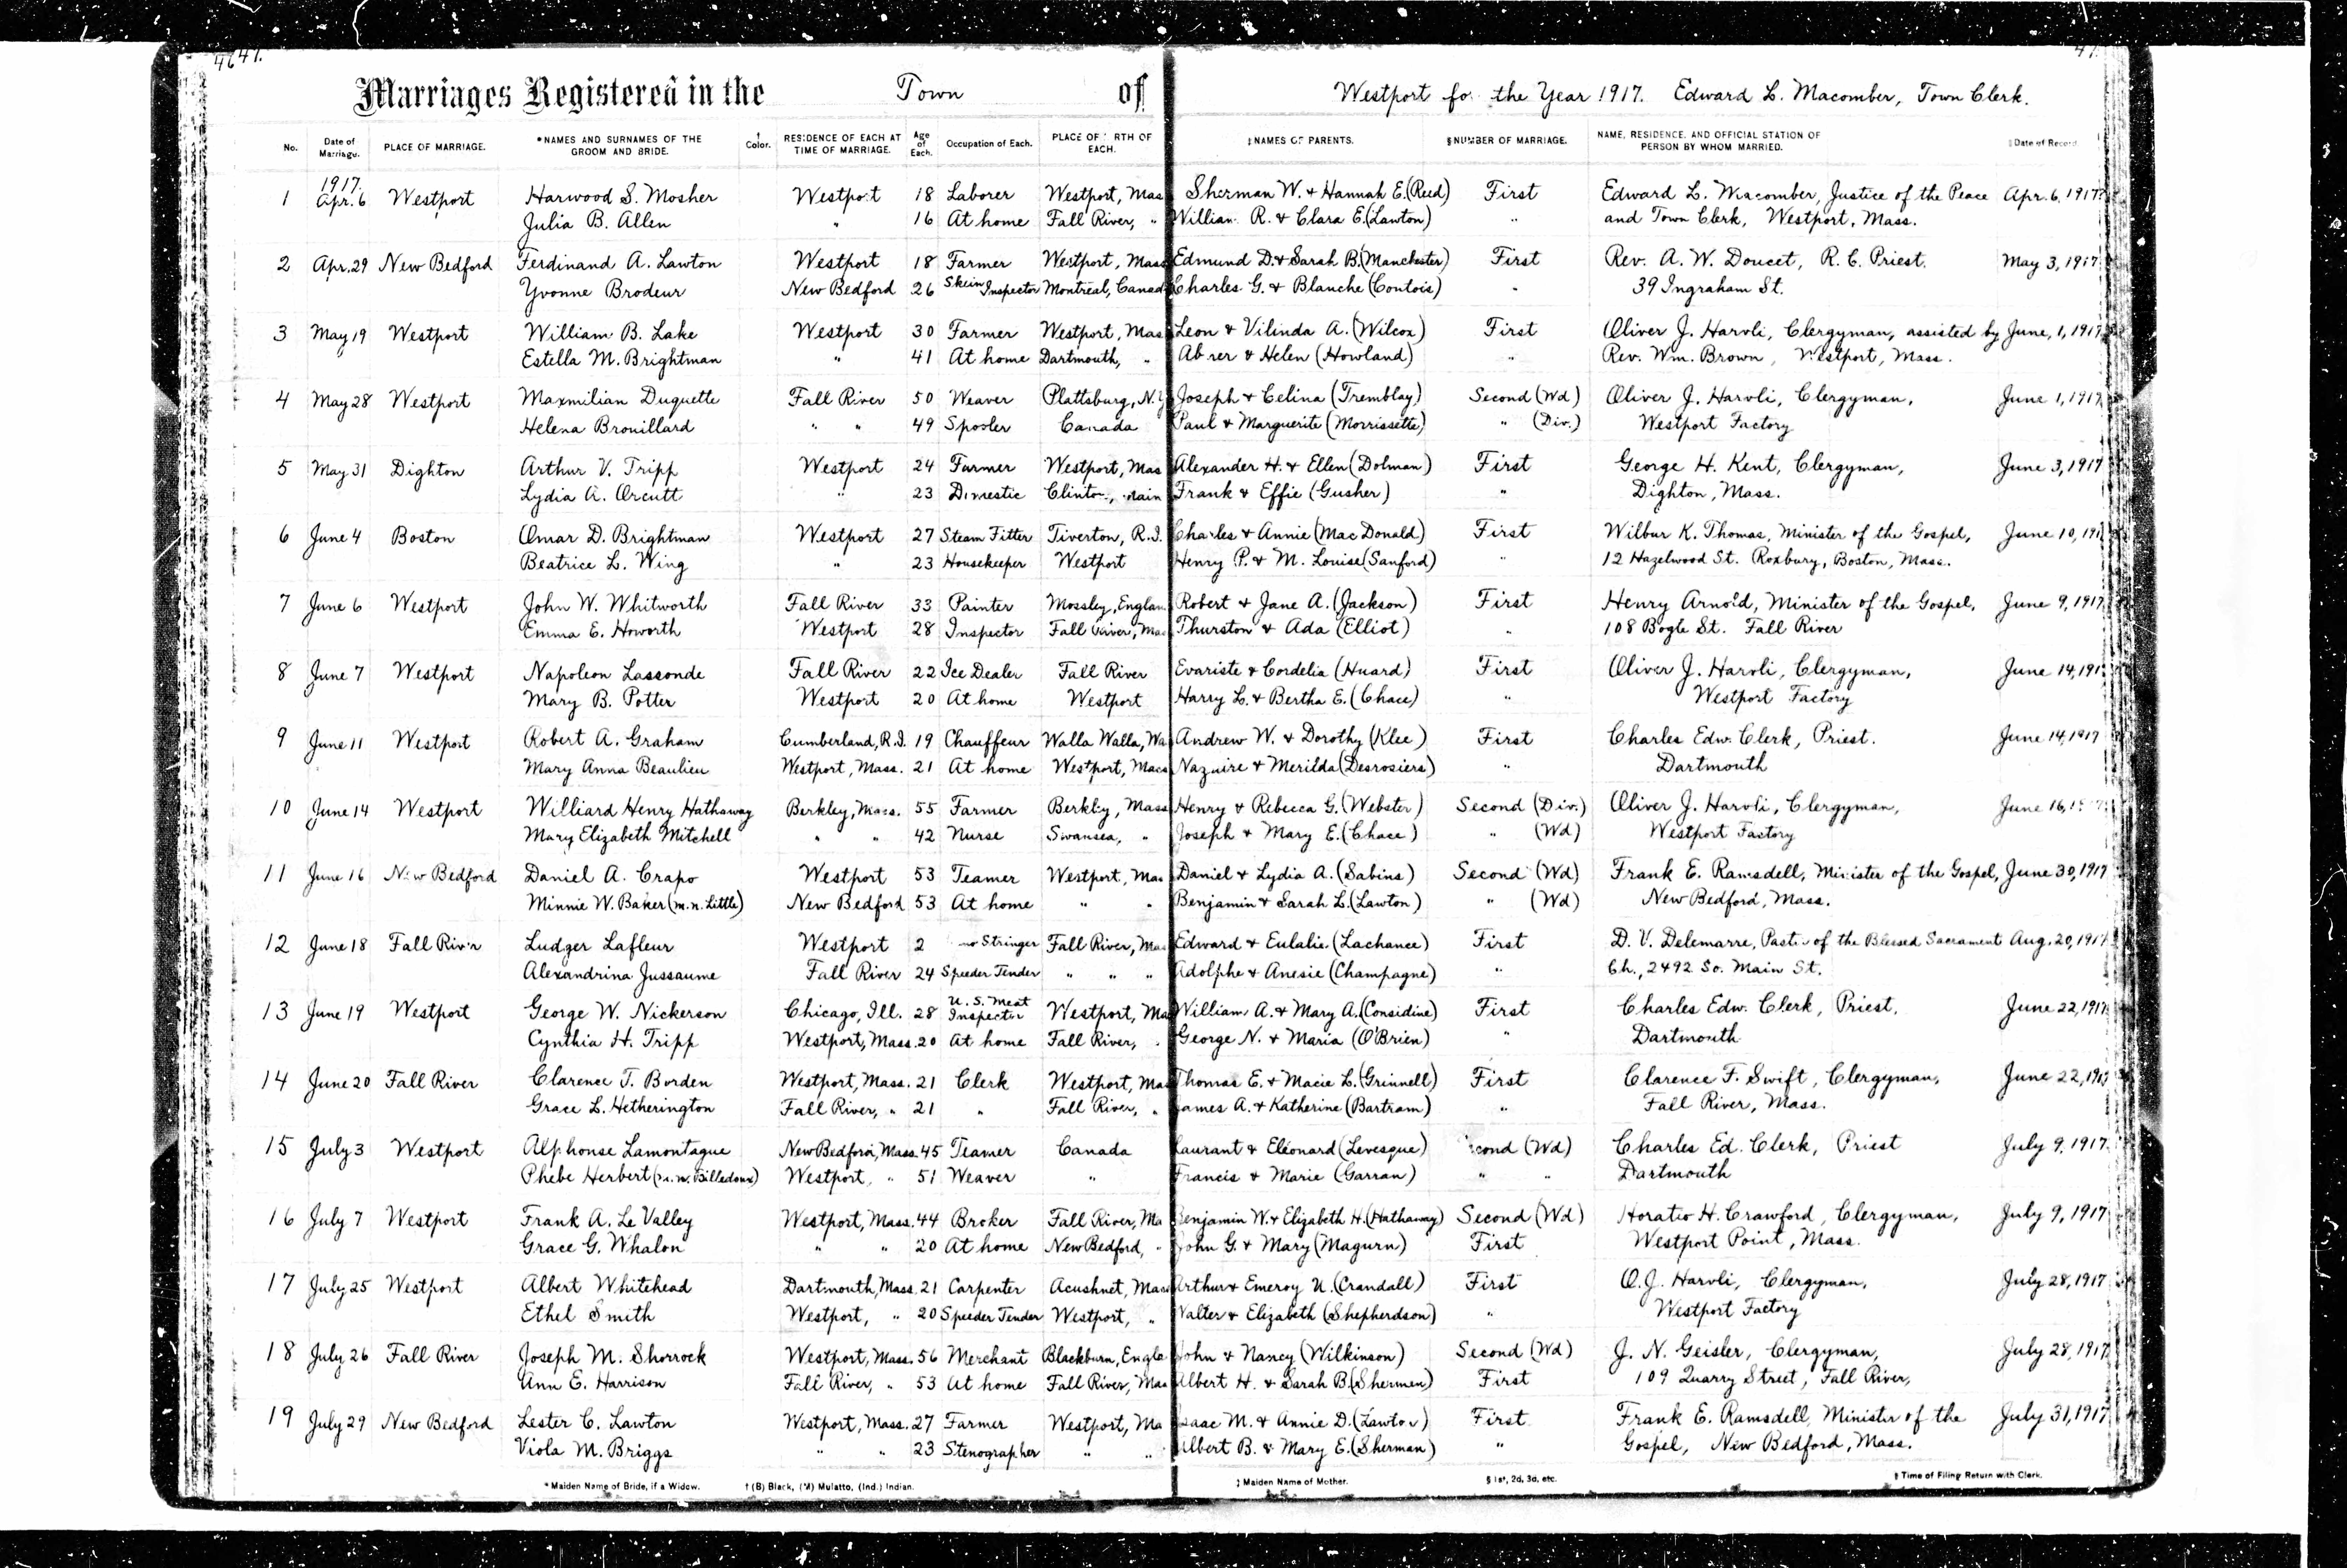 4647.
47.
Marriages Registered in the Town of Westport for the Year 1917. Edward L. Macomber, Town Clerk.
No. Date of Marriage. PLACE OF MARRIAGE. *NAMES AND SURNAMES OF THE GROOM AND BRIDE. † Color. RESIDENCE OF EACH AT TIME OF MARRIAGE. Age of Each. Occupation of Each. PLACE OF RTH OF EACH. ‡NAMES OF PARENTS. §NUMBER OF MARRIAGE. NAME, RESIDENCE, AND OFFICIAL STATION OF PERSON BY WHOM MARRIED. Date of Record
1917.
1 Apr. 6 Westport Harwood S. Mosher Westport 18 Laborer Westport, Mas Sherman W. & Hannah E. (Reed) First Edward L. Macomber, Justice of the Peace Apr. 6, 1917
Julia B. Allen " 16 At home Fall River, " William R. & Clara E. (Lawton) " and Town Clerk, Westport, Mass.
2 Apr. 29 New Bedford Ferdinand A. Lawton Westport 18 Farmer Westport, Mass Edmund D. & Sarah B. (Manchester) First Rev. A. W. Doucet, R. C. Priest. May 3, 1917
Yvonne Brodeur New Bedford 26 Skein Inspector Montreal, Canad Charles G. & Blanche (Contois) " 39 Ingraham St.
3 May 19 Westport William B. Lake Westport 30 Farmer Westport, Mas Leon & Vilinda A. (Wilcox) First Oliver J. Harvli, Clergyman, assisted by June, 1, 1917
Estella M. Brightman " 41 At home Dartmouth, " Abner & Helen (Howland) " Rev. Wm. Brown, Westport, Mass.
4 May 28 Westport Maxmilian Duquette Fall River 50 Weaver Plattsburg, N.Y Joseph & Celina (Tremblay) Second (Wd) Oliver J. Harvli, Clergyman, June 1, 1917
Helena Brouillard " " 49 Spooler Canada Paul & Marguerite (Morrissette) " (Div.) Westport Factory
5 May 31 Dighton Arthur V. Tripp Westport 24 Farmer Westport, Mas Alexander H. & Ellen (Dolman) First George H. Kent, Clergyman, June 3, 1917
Lydia A. Orcutt " 23 Domestic Clinton, Main Frank & Effie (Gusher) " Dighton, Mass.
6 June 4 Boston Omar D. Brightman Westport 27 Steam Fitter Tiverton, R.I. Charles & Annie (Mac Donald) First Wilbur K. Thomas, Minister of the Gospel, June 10, 191
Beatrice L. Wing " 23 Housekeeper Westport Henry P. & M. Louise (Sanford) " 12 Hazelwood St. Roxbury, Boston, Mass.
7 June 6 Westport John W. Whitworth Fall River 33 Painter Mossley, Englan Robert & Jane A. (Jackson) First Henry Arnold, Minister of the Gospel, June 9, 1917
Emma E. Howorth Westport 28 Inspector Fall River, Mas Thurston & Ada (Elliot) " 108 Bogle St. Fall River
8 June 7 Westport Napoleon Lassonde Fall River 22 Ice Dealer Fall River Evariste & Cordelia (Huard) First Oliver J. Harvli, Clergyman, June 14, 191
Mary B. Potter Westport 20 At home Westport Harry L. & Bertha E. (Chace) " Westport Factory
9 June 11 Westport Robert A. Graham Cumberland, R.I. 19 Chauffeur Walla Walla, Wa Andrew W. & Dorothy (Klee) First Charles Edw. Clerk, Priest. June 14, 1917
Mary Anna Beaulieu Westport, Mass. 21 At home Westport, Mass Nazaire & Merilda (Desrosiers) " Dartmouth
10 June 14 Westport Williard Henry Hathaway Berkley, Mass. 55 Farmer Berkley, Mass Henry & Rebecca G. (Webster) Second (Div.) Oliver J. Harvli, Clergyman, June 16,
Mary Elizabeth Mitchell " " 42 Nurse Swansea, " Joseph & Mary E. (Chace) " (Wd) Westport Factory
11 June 16 New Bedford Daniel A. Crapo Westport 53 Teamer Westport, Mas Daniel & Lydia A. (Sabins) Second (Wd) Frank E. Ramsdell, Minister of the Gospel, June 30, 1917
Minnie W. Baker (m.n. Little) New Bedford 53 At home " " Benjamin & Sarah L. (Lawton) " (Wd) New Bedford, Mass.
12 June 18 Fall River Ludger Lafleur Westport 2 Stringer Fall River, Mas Edward & Eulalie (Lachance) First D. V. Delemarre, Pastor of the Blessed Sacrament Aug. 20, 1917
Alexandrina Jussaume Fall River 24 Speeder Tender " " " Adolphe & Anesie (Champagne) " Ch., 2492 So. Main St.
13 June 19 Westport George W. Nickerson Chicago, Ill. 28 U.S. Meat Inspector Westport, Ma William A. & Mary A. (Considine) First Charles Edw. Clerk, Priest, June 22, 1917
Cynthia H. Tripp Westport, Mass. 20 At home Fall River, " George N. & Maria (O'Brien) " Dartmouth
14 June 20 Fall River Clarence T. Borden Westport, Mass. 21 Clerk Westport, Ma Thomas E. & Macie L. (Grinnell) First Clarence F. Swift, Clergyman, June 22, 191
Grace L. Hetherington Fall River, " 21 " Fall River, " James A. & Katherine (Bartram) " Fall River, Mass.
15 July 3 Westport Alphonse Lamontague New Bedford, Mass. 45 Teamer Canada Laurant & Eléonard (Levesque) Second (Wd) Charles Ed. Clerk, Priest July 9, 1917.
Phebe Herbert (m.n. Billedoux) Westport, " 51 Weaver " Francis & Marie (Garran) " " Dartmouth
16 July 7 Westport Frank A. Le Valley Westport, Mass. 44 Broker Fall River, Ma Benjamin W. & Elizabeth H. (Hathaway) Second (Wd) Horatio H. Crawford, Clergyman, July 9, 1917
Grace G. Whalon " " 20 At home New Bedford, " John G. & Mary (Magurn) First Westport Point, Mass.
17 July 25 Westport Albert Whitehead Dartmouth, Mass. 21 Carpenter Acushnet, Mas Arthur & Emeroy U. (Crandall) First O.J. Harvli, Clergyman, July 28, 1917
Ethel Smith Westport, " 20 Speeder Tender Westport, " Walter & Elizabeth (Shepherdson) " Westport Factory
18 July 26 Fall River Joseph M. Shorrock Westport, Mass. 56 Merchant Blackburn, Engla John & Nancy (Wilkinson) Second (Wd) J. N. Geisler, Clergyman, July 28, 1917
Ann E. Harrison Fall River, " 53 At home Fall River, Mas Albert H. & Sarah B. (Shermen) First 109 Quarry Street, Fall River,
19 July 29 New Bedford Lester C. Lawton Westport, Mass. 27 Farmer Westport, Ma Isaac M. & Annie D. (Lawton) First Frank E. Ramsdell, Minister of the July 31, 1917
Viola M. Briggs " " 23 Stenographer " " Albert B. & Mary E. (Sherman) " Gospel, New Bedford, Mass.
*Maiden Name of Bride, if a Widow. †(B) Black, (M) Mulatto, (Ind.) Indian. ‡ Maiden Name of Mother. § 1st, 2d, 3d, etc. ‖ Time of Filing Return with Clerk.